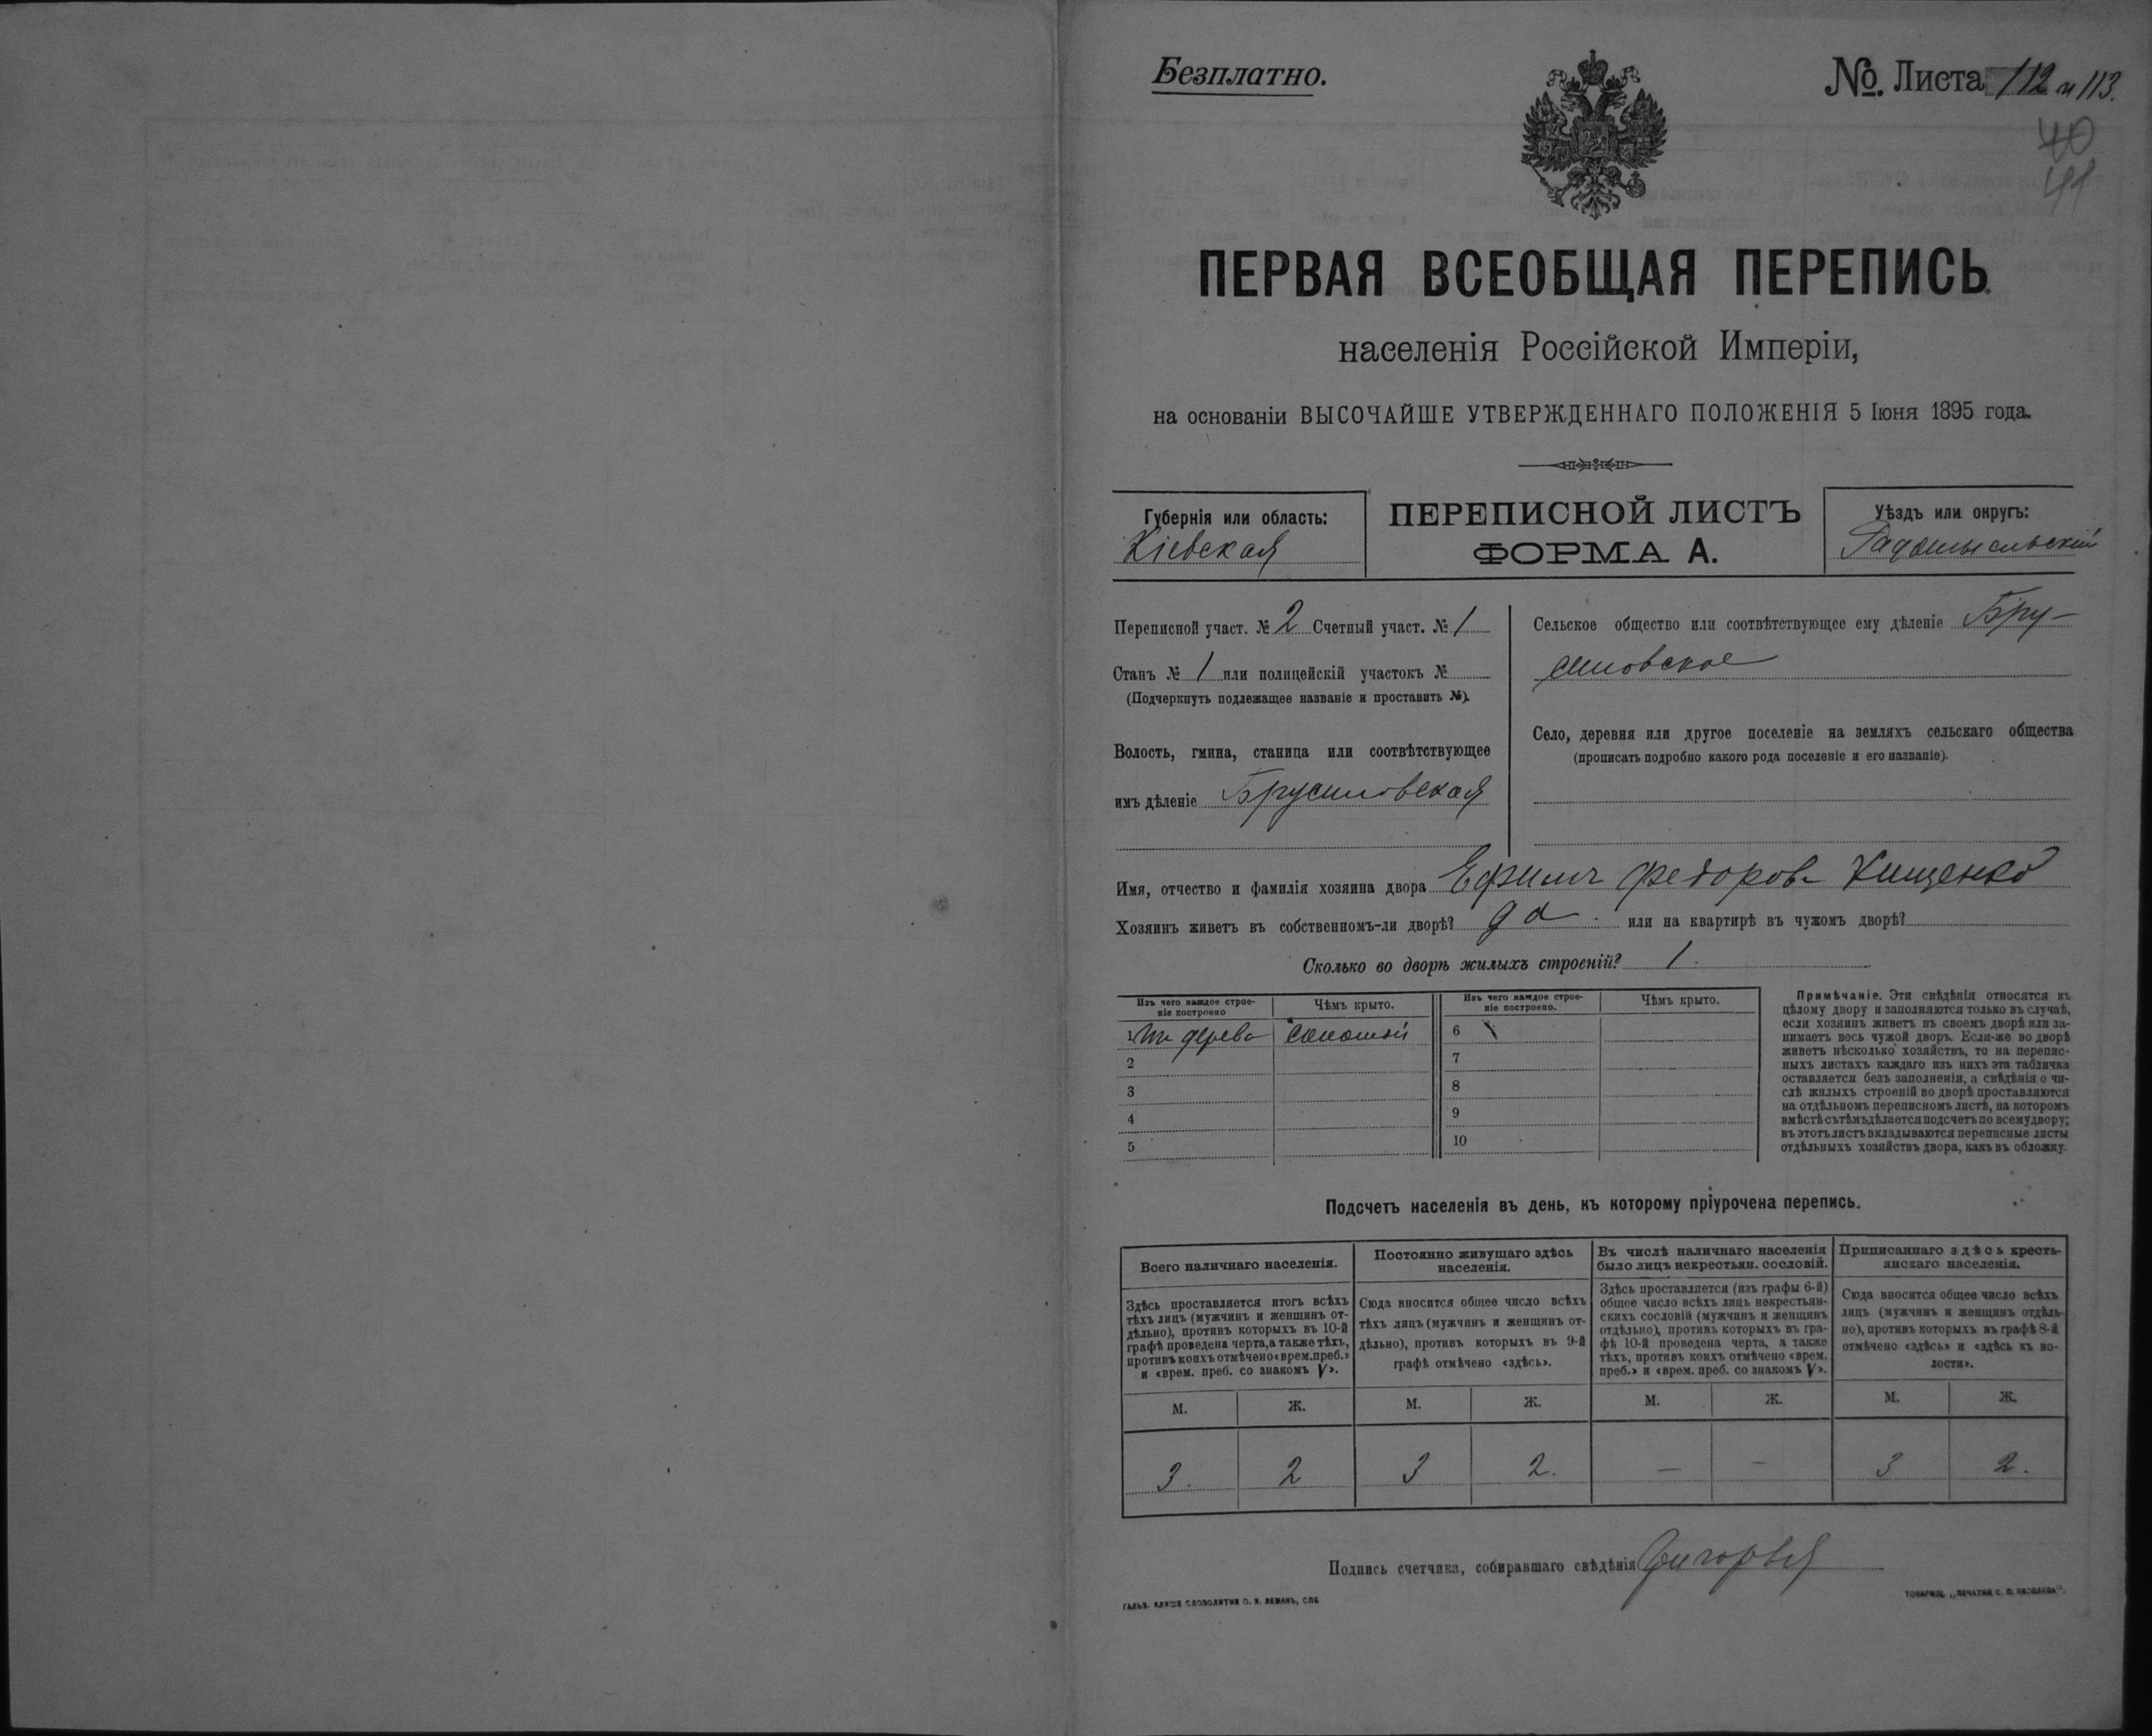 Безплатно.
№ Листа 112 и 113.
40
41
ПЕРВАЯ ВСЕОБЩАЯ ПЕРЕПИСЬ
населенія Россійской Имперіи,
на основаніи ВЫСОЧАЙШЕ УТВЕРЖДЕННАГО ПОЛОЖЕНІЯ 5 Іюня 1895 года.
Губернія или область:
Кіевская
ПЕРЕПИСНОЙ ЛИСТЪ
ФОРМА А.
Уѣздъ или округъ:
Радомысльскій
Переписной участ. № 2 Счетный участ. № 1
Станъ № 1 или полицейскій участокъ №
(Подчеркнуть подлежащее названіе и проставить №).
Волость, гмина, станица или соотвѣтствующее
имъ дѣленіе Брусиловская
Сельское общество или соотвѣтствующее ему дѣленіе Бру-
силовское
Село, деревня или другое поселеніе на земляхъ сельскаго общества
(прописать подробно какого рода поселеніе и его названіе).
Имя, отчество и фамилія хозяина двора Ефимъ Федоровъ Кищенко
Хозяинъ живетъ въ собственномъ-ли дворѣ? да. или на квартирѣ въ чужомъ дворѣ?
Сколько во дворѣ жилыхъ строеній? 1.
Изъ чего каждое строе-
ніе построено
Чѣмъ крыто.
Изъ чего каждое строе-
ніе построено.
Чѣмъ крыто.
1 Изъ дерева Соломой
2
3
4
5
6
7
8
9
10
Примѣчаніе. Эти свѣдѣнія относятся къ
цѣлому двору и заполняются только въ случаѣ,
если хозяинъ живетъ въ своемъ дворѣ или за-
нимаетъ весь чужой дворъ. Если-же во дворѣ
живетъ нѣсколько хозяйствъ, то на перепис-
ныхъ листахъ каждаго изъ нихъ эта табличка
оставляется безъ заполненія, а свѣдѣнія о чи-
слѣ жилыхъ строеній во дворѣ проставляются
на отдѣльномъ переписномъ листѣ, на которомъ
вмѣстѣ съ тѣмъ дѣлается подсчетъ по всему двору;
въ этотъ листъ вкладываются переписные листы
отдѣльныхъ хозяйствъ двора, какъ въ обложку.
Подсчетъ населенія въ день, къ которому пріурочена перепись.
Всего наличнаго населенія.
Здѣсь проставляется итогъ всѣхъ
тѣхъ лицъ (мужчинъ и женщинъ от-
дѣльно), противъ которыхъ въ 10-й
графѣ проведена черта, а также тѣхъ,
противъ коихъ отмѣчено «врем. преб.»
и «врем. преб. со знакомъ V».
Постоянно живущаго здѣсь
населенія.
Сюда вносится общее число всѣхъ
тѣхъ лицъ (мужчинъ и женщинъ от-
дѣльно), противъ которыхъ въ 9-й
графѣ отмѣчено «здѣсь».
Въ числѣ наличнаго населенія
было лицъ некрестьян. сословій.
Здѣсь проставляется (изъ графы 6-й)
общее число всѣхъ лицъ некрестьян-
скихъ сословій (мужчинъ и женщинъ
отдѣльно), противъ которыхъ въ гра-
фѣ 10-й проведена черта, а также
тѣхъ, противъ коихъ отмѣчено «врем.
преб.» и «врем. преб. со знакомъ V».
Приписаннаго здѣсь кресть-
янскаго населенія.
Сюда вносится общее число всѣхъ
лицъ (мужчинъ и женщинъ отдѣль-
но), противъ которыхъ въ графѣ 8-й
отмѣчено «здѣсь» и «здѣсь къ во-
лости».
М. Ж. М. Ж. М. Ж. М. Ж.
3. 2 3 2. — — 3 2.
Подпись счетчика, собиравшаго свѣдѣнія
ГАЛЬВ. КЛИШЕ СЛОВОЛИТНИ О. И. ЛЕМАНЪ, СПБ
ТОВАРИЩ. „ПЕЧАТНЯ С. П. ЯКОВЛЕВА".